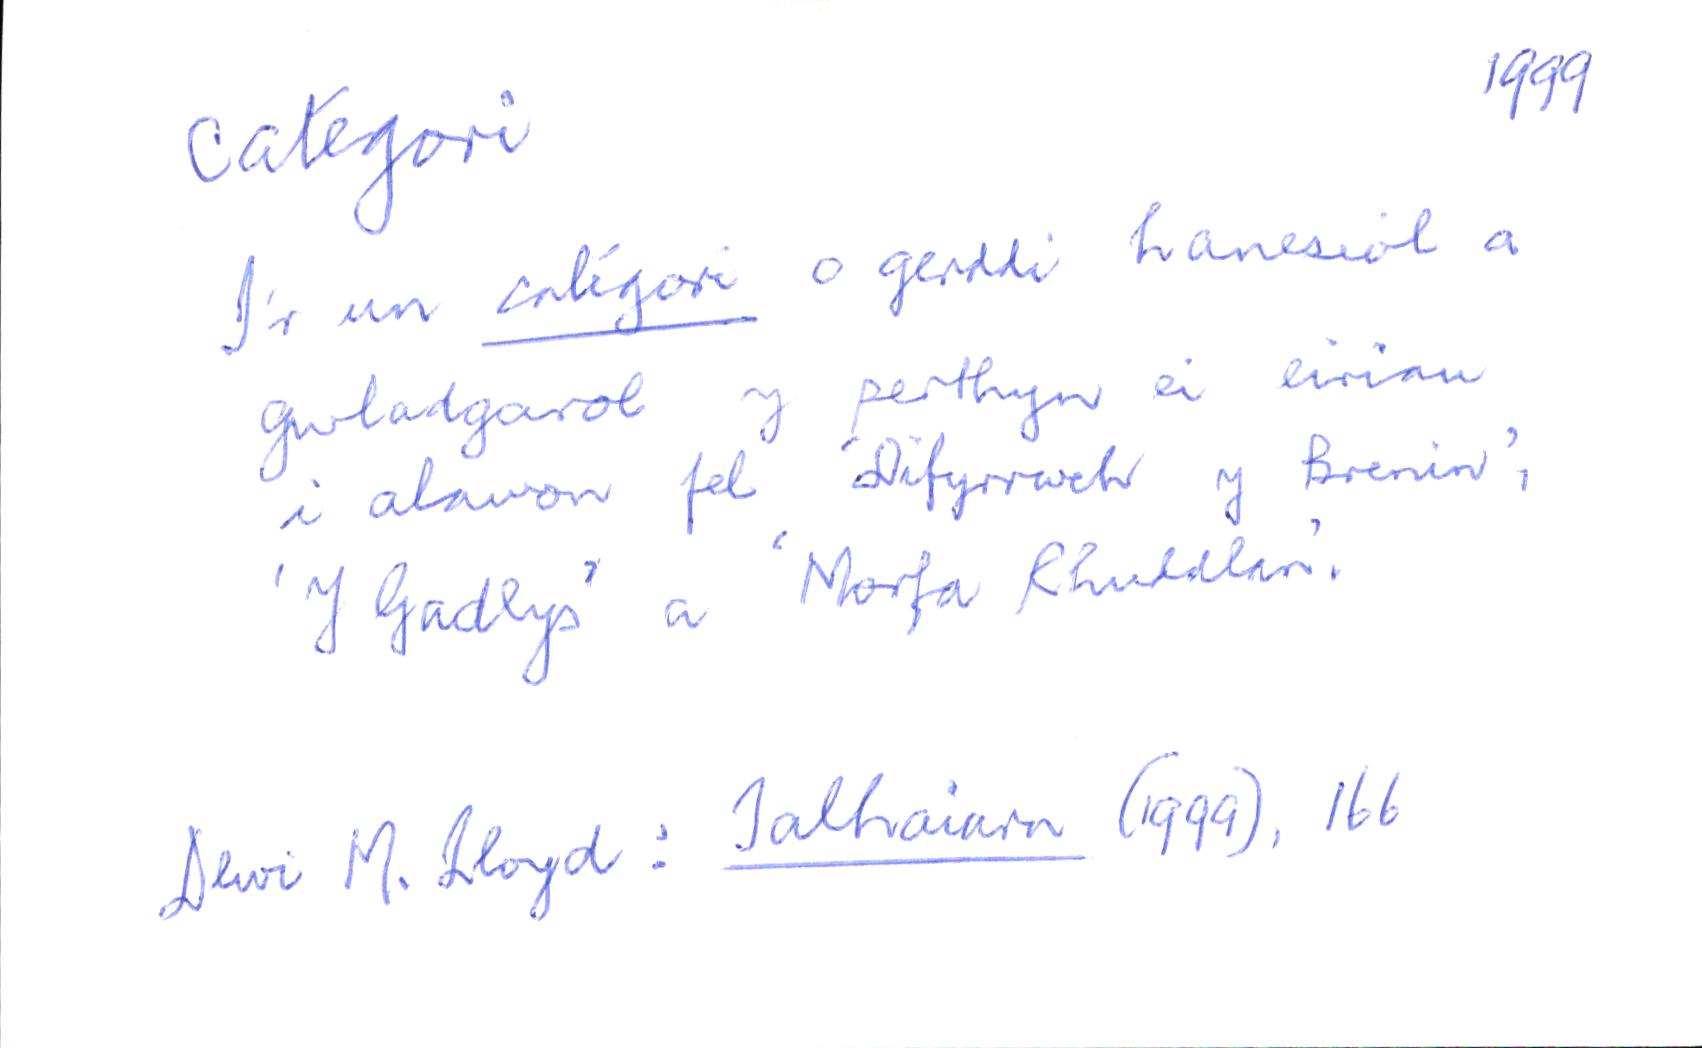 1999
categori
I'r un categori o gerddi hanesiol a
gwladgarol y perthyn ei eiriau
i alawon fel 'Difyrrwch y Brenin',
'Y Gadlys' a 'Morfa Rhuddlan'.
Dewi M. Lloyd: Talhaiarn (1999), 166